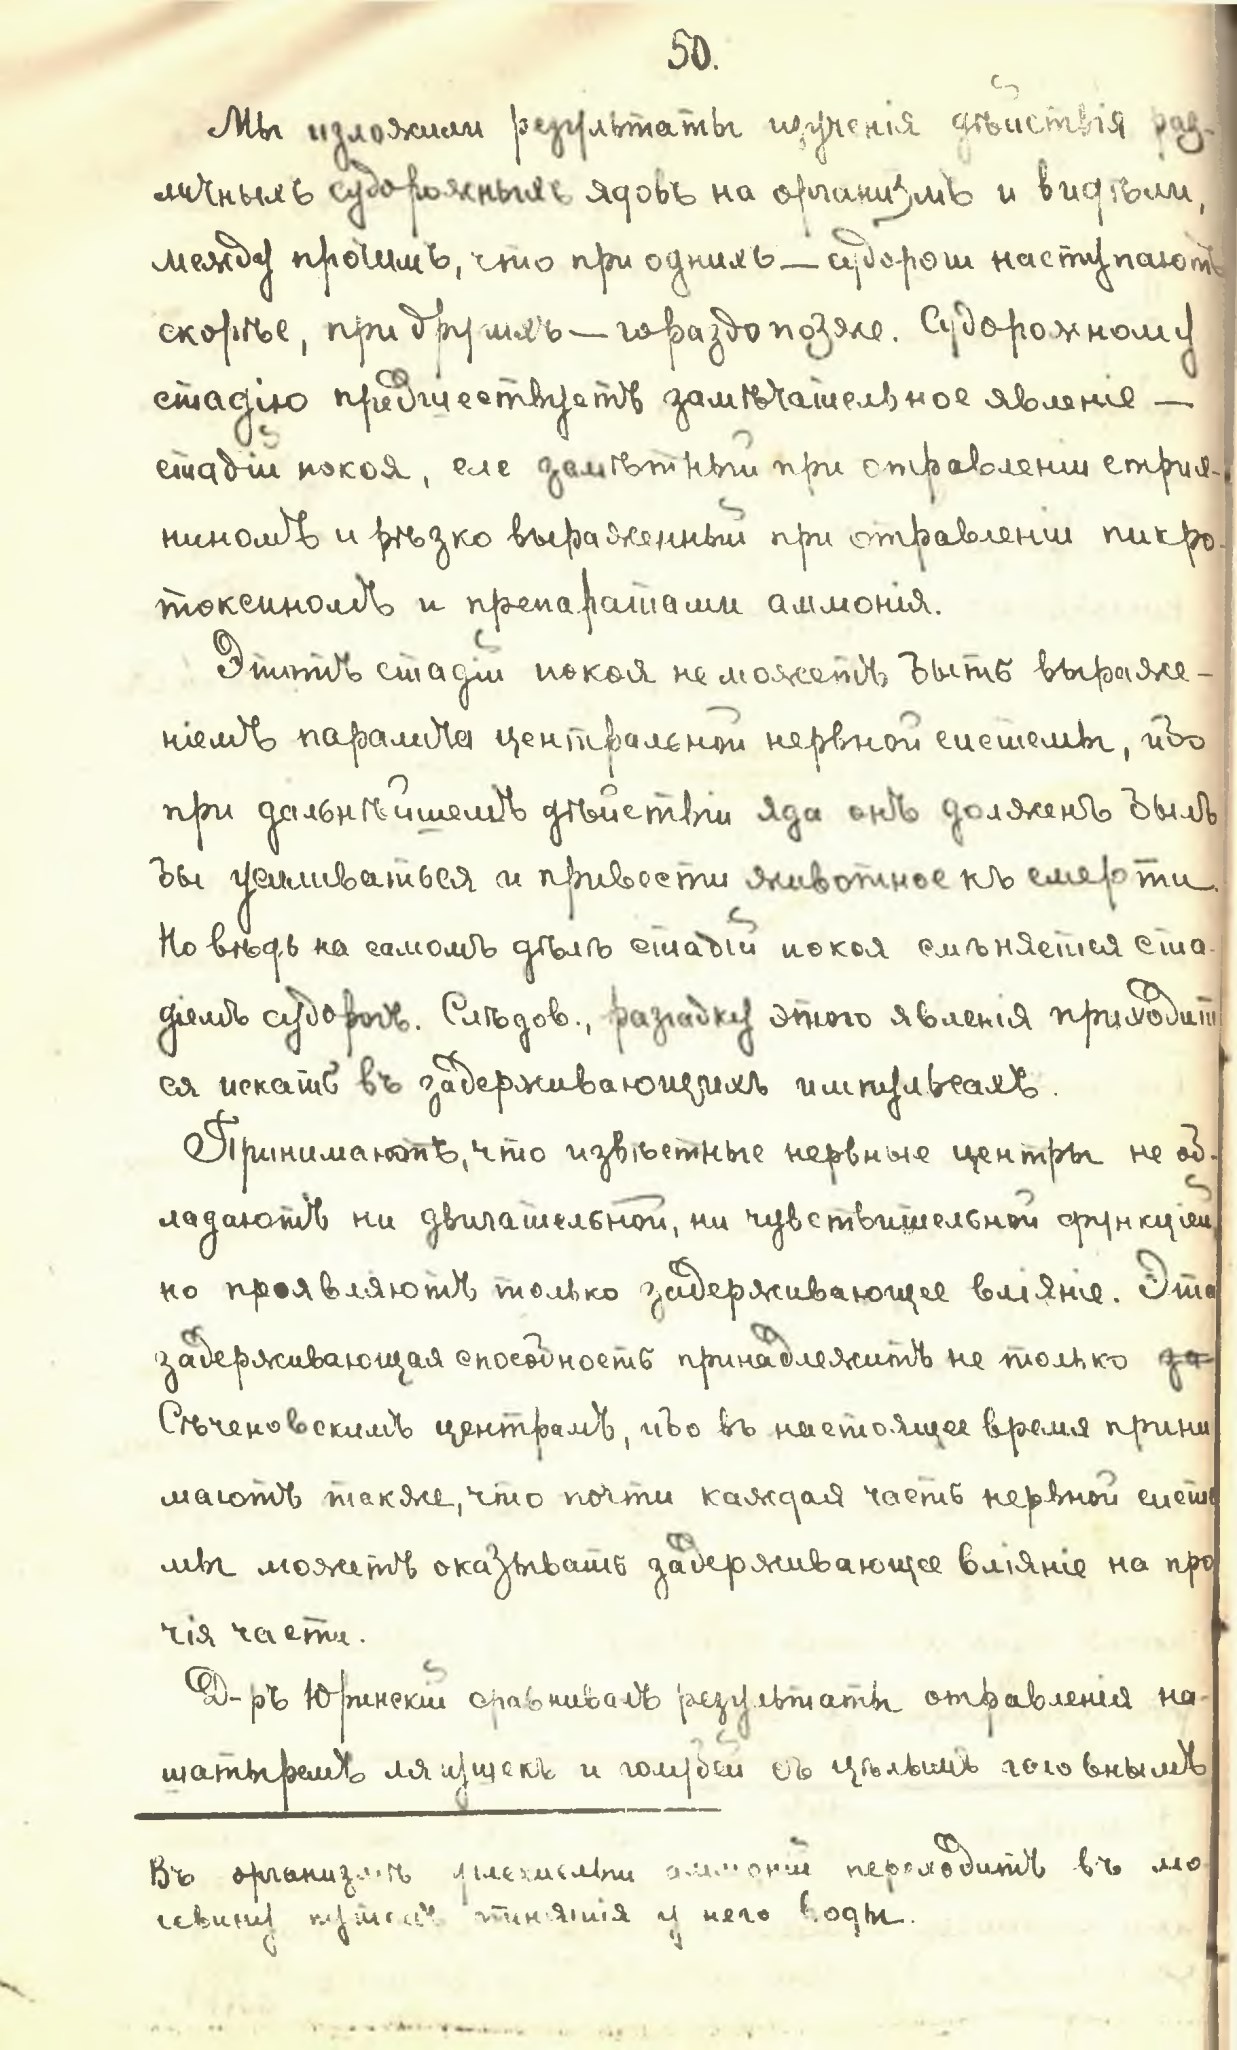 50.
Мы изложили результаты изученія дѣйствія раз-
личныхъ судорожныхъ ядовъ на организмъ и видѣли,
между прочимъ, что при однихъ — судороги наступаютъ
скорѣе, при другихъ — гораздо позже. Судорожному
стадію предшествуетъ замѣчательное явленіе —
стадій покоя, еле замѣтный при отравленіи стрих-
ниномъ и рѣзко выраженный при отравленіи пикро-
токсиномъ и препаратами аммонія.
Этотъ стадій покоя не можетъ быть выраже-
ніемъ паралича центральной нервной системы, ибо
при дальнѣйшемъ дѣйствіи яда онъ долженъ былъ
бы усиливаться и привести животное къ смерти.
Но вѣдь на самомъ дѣлѣ стадій покоя смѣняется ста-
діемъ судорогъ. Слѣдов., разгадку этого явленія приходит
ся искать въ задерживающихъ импульсахъ.
Принимаютъ, что извѣстные нервные центры не об-
ладаютъ ни двигательной, ни чувствительной функціей,
но проявляютъ только задерживающее вліяніе. Эта
задерживающая способность принадлежитъ не только за-
Сѣченовскимъ центрамъ, ибо въ настоящее время прини
маютъ также, что почти каждая часть нервной систе
мы можетъ оказывать задерживающее вліяніе на про
чія части.
Д-ръ Юринскій сравнивалъ результаты отравленія на-
шатыремъ лягушекъ и голубей съ цѣлымъ головнымъ
Въ организмѣ аммоній переходитъ въ мо
чевину путемъ отнятія у него воды.